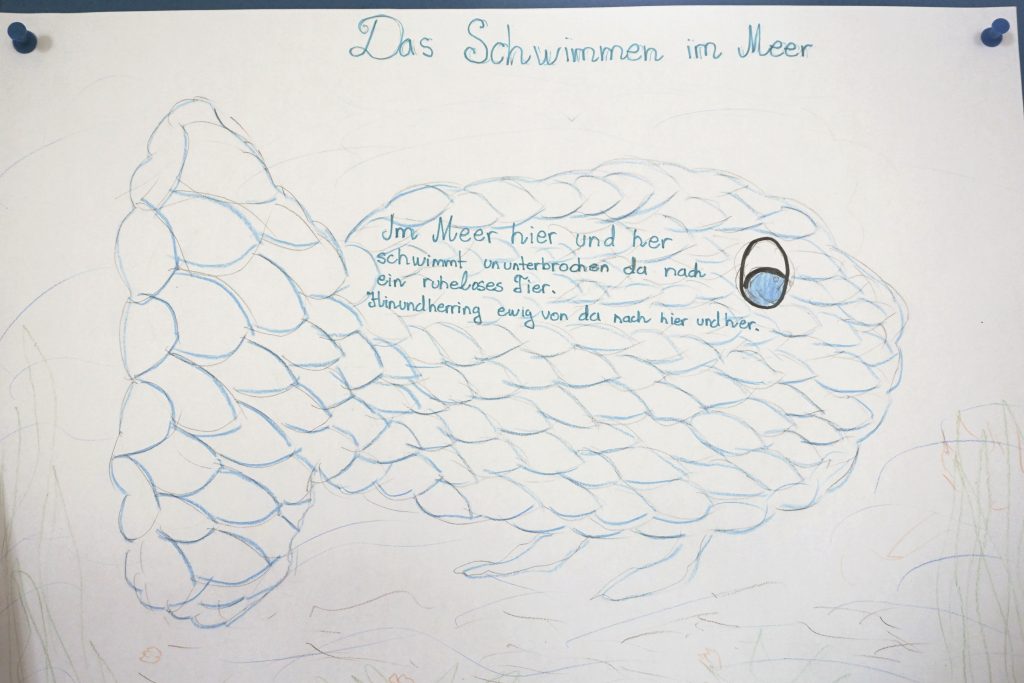 Das Schwimmen im Meer
Im Meer hier und her
schwimmt ununterbrochen da nach
ein ruheloses Tier.
Hinundherring ewig von da nach hier und her.